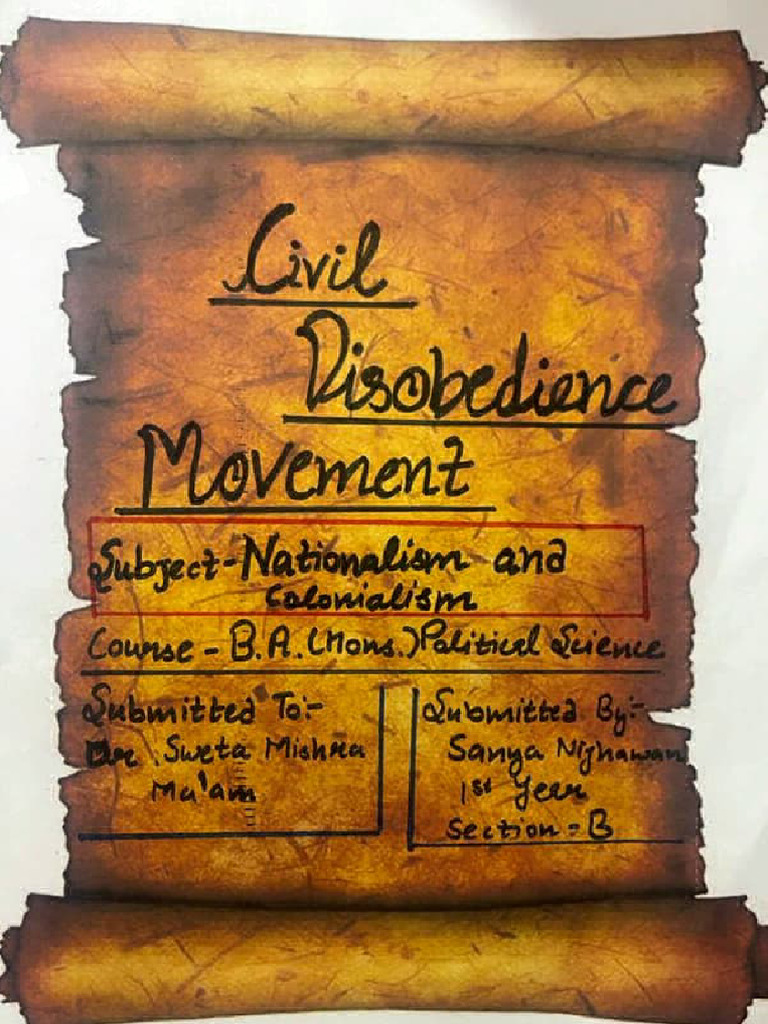 Civil
Disobedience
Movement
Subject - Nationalism and
Colonialism
Course - B.A. (Hons.) Political Science
Submitted To:-
Dr. Sweta Mishra
Ma'am
Submitted By:-
Sanya Nijhawan
1st Year
Section - B